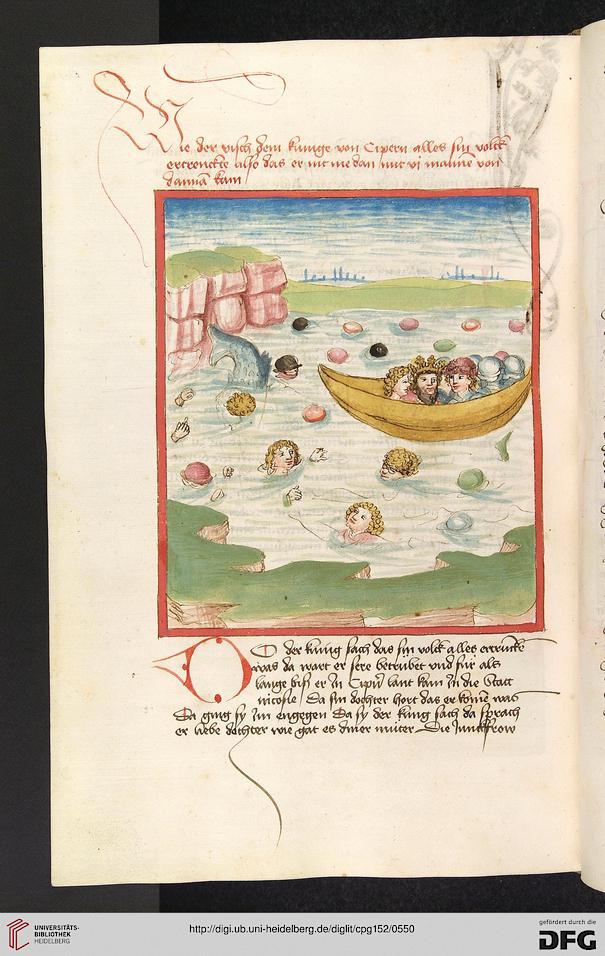 Wie der visch dem kunige von Cipern alles sin volck
ertrenckte also das er nit me dan mit vi manne von
danna kam
Do der kunig sach das sin volck alles ertrunckē
was da wart er sere betrubet vnd fur als
lange biß er in Cipern lant kam zu die Statt
nicosie Da sin dochter hort das er kome was
Da ging sy im engegen Da sy der king sach da sprach
er liebe dochter wie gat es diner muter Die Junckfrow
UNIVERSITÄTS-
BIBLIOTHEK
HEIDELBERG
http://digi.ub.uni-heidelberg.de/diglit/cpg152/0550
gefördert durch die
DFG